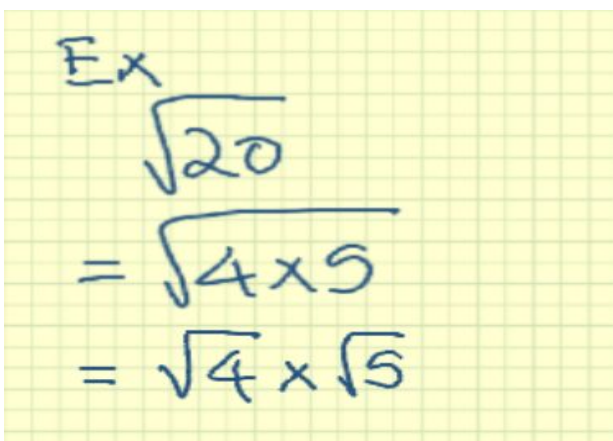 Ex
√20
= √4×5
= √4 × √5